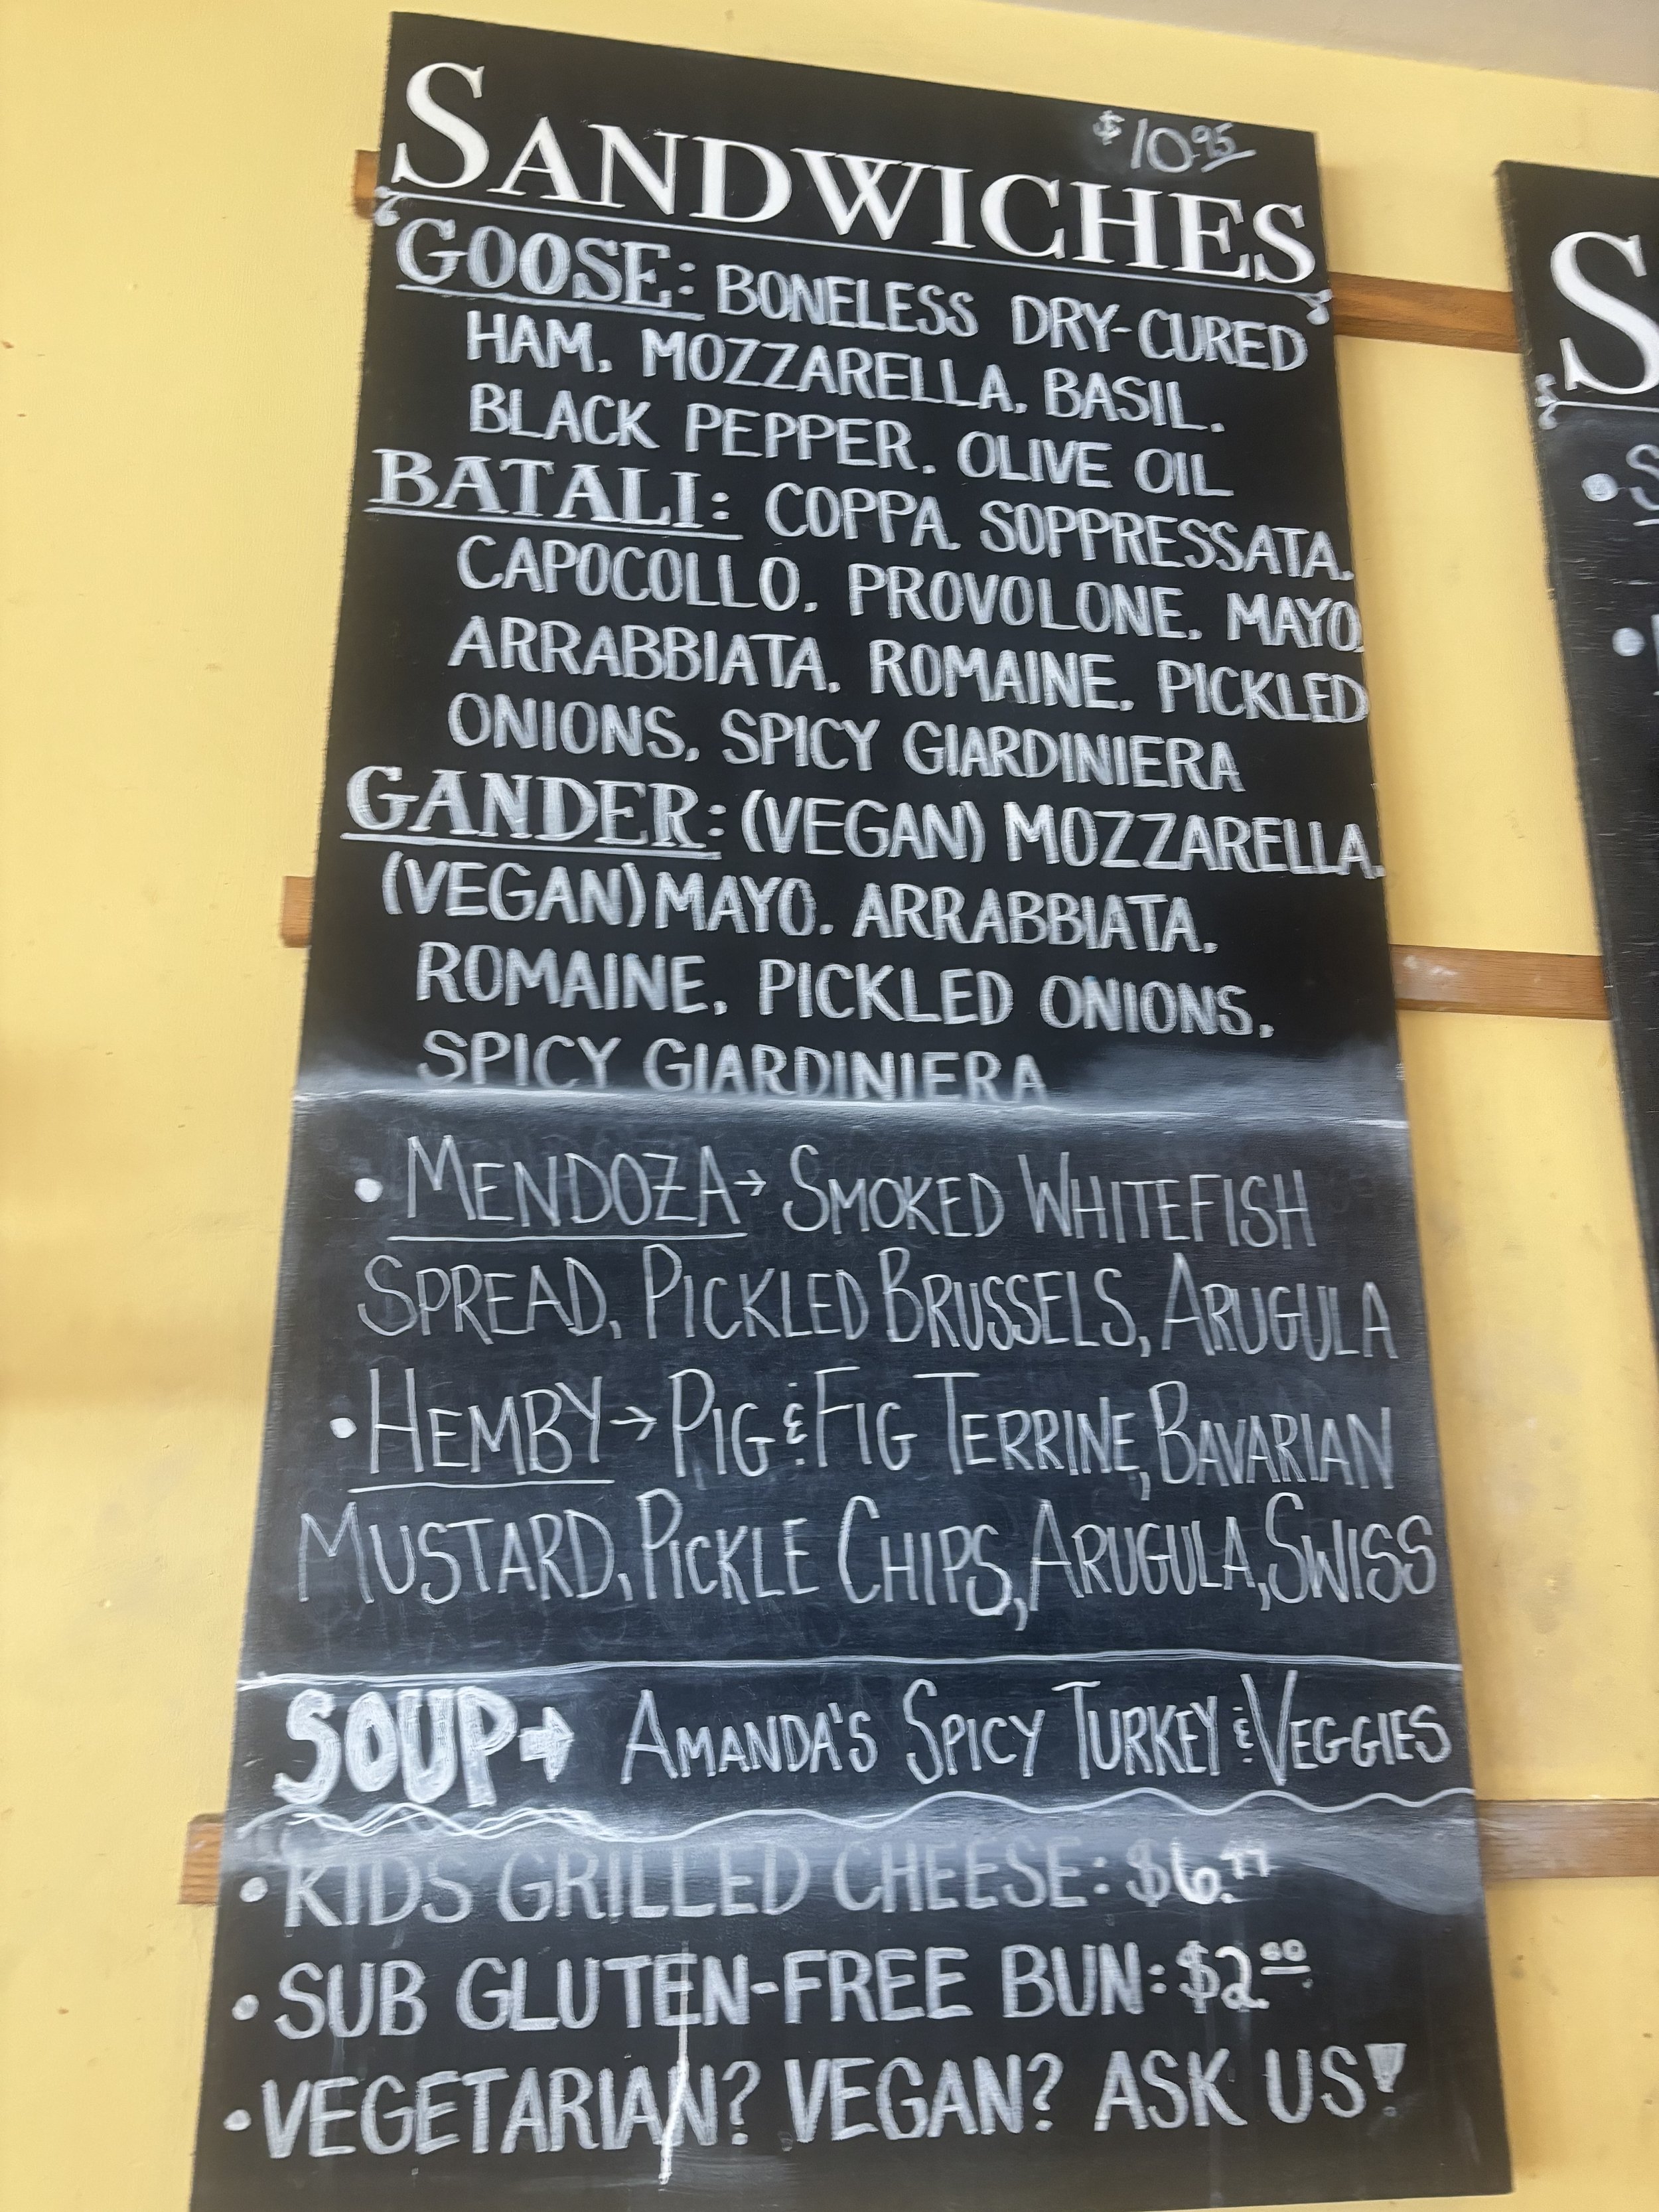 SANDWICHES $10.95
GOOSE: BONELESS DRY-CURED
HAM, MOZZARELLA, BASIL,
BLACK PEPPER, OLIVE OIL
BATALI: COPPA, SOPPRESSATA,
CAPOCOLLO, PROVOLONE, MAYO,
ARRABBIATA, ROMAINE, PICKLED
ONIONS, SPICY GIARDINIERA
GANDER: (VEGAN) MOZZARELLA,
(VEGAN) MAYO, ARRABBIATA,
ROMAINE, PICKLED ONIONS,
SPICY GIARDINIERA
• MENDOZA → SMOKED WHITEFISH
SPREAD, PICKLED BRUSSELS, ARUGULA
• HEMBY → PIG & FIG TERRINE, BAVARIAN
MUSTARD, PICKLE CHIPS, ARUGULA, SWISS
SOUP → AMANDA'S SPICY TURKEY & VEGGIES
• KIDS GRILLED CHEESE:
• SUB GLUTEN-FREE BUN: $2.00
• VEGETARIAN? VEGAN? ASK US!
S
• S
•